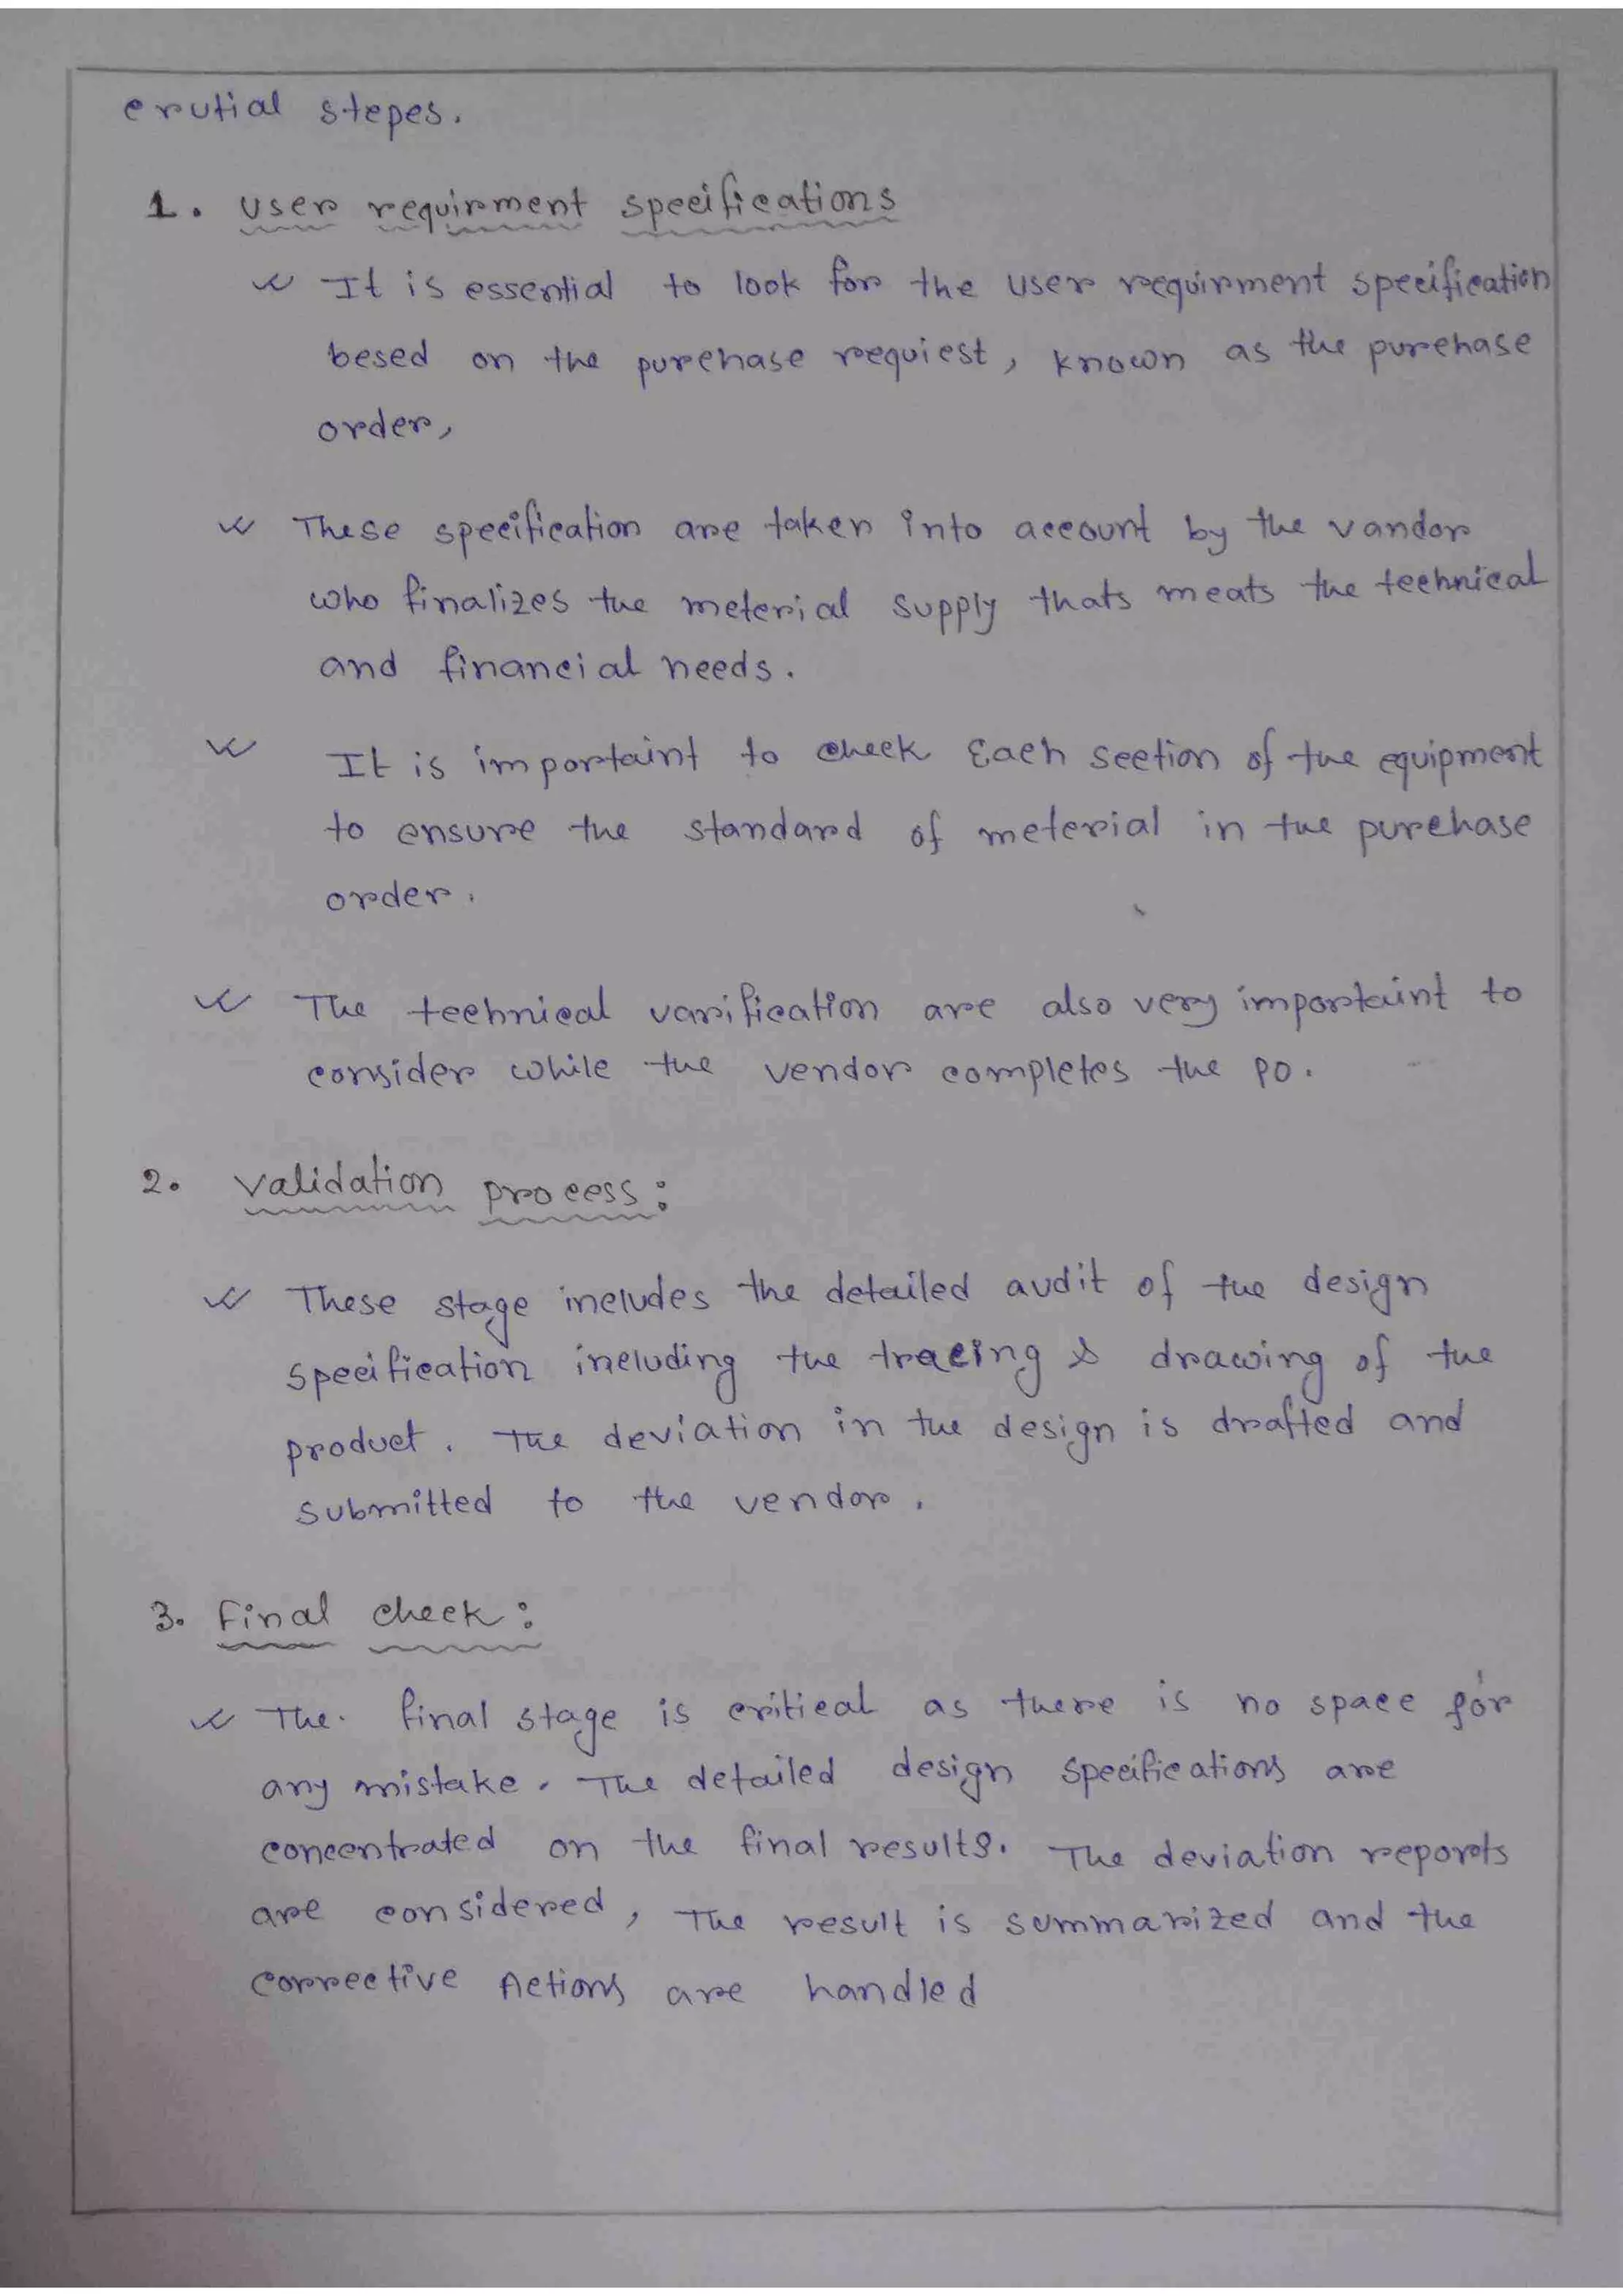 crutial stepes.
1. User requirment specifications
It is essential to look for the user requirment specification
besed on the purchase requiest, known as the purchase
order,
These specification are taken into account by the vandor
who finalizes the meterial supply thats meats the technical
and financial needs.
It is importaint to check Each section of the equipment
to ensure the standard of meterial in the purchase
order.
The technical varification are also very importaint to
consider while the vendor completes the PO.
2. Validation process:
These stage includes the detailed audit of the design
specification including the tracing & drawing of the
product. The deviation in the design is drafted and
submitted to the vendor.
3. Final check:
The. final stage is critical as there is no space for
any mistake. The detailed design specifications are
concentrated on the final results. The deviation reports
are considered, The result is summarized and the
corrective Actions are handled